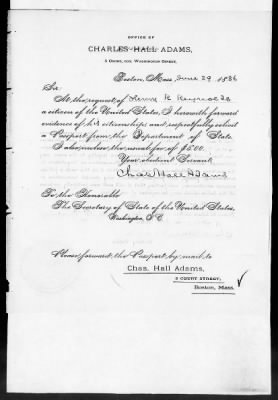 OFFICE OF
CHARLES HALL ADAMS,
5 COURT, COR. WASHINGTON STREET,
Boston, Mass June 29 1886
Sir
At the request of Henry R Reynolds
a citizen of the United States, I herewith forward
evidence of his citizenship and respectfully solicit
a Passport from the Department of State
I also enclose the usual fee of $5.00.
Your obedient Servant,
Chas Hall Adams
To the Honorable
The Secretary of State of the United States,
Washington, D.C.
Please forward the Passport by mail to
Chas. Hall Adams,
5 COURT STREET,
Boston, Mass.